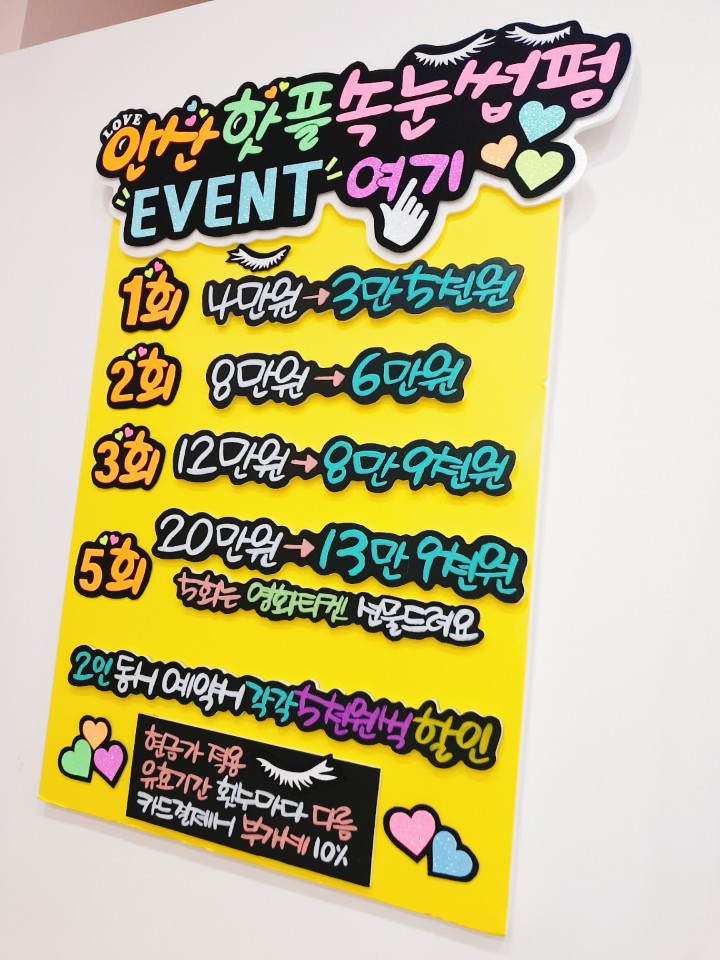 LOVE
안산 핫플 속눈썹펌
EVENT 여기
1회 4만원→3만5천원
2회 8만원→6만원
3회 12만원→8만9천원
5회 20만원→13만9천원
5회는 영화티켓 선물드려요
2인 동시 예약시 각각 5천원씩 할인
현금가 적용
유효기간 횟수마다 다름
카드결제시 부가세 10%